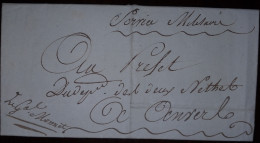 Service Militaire
Au Prefet
Du dep.t des deux Nethes
a Anvers
Le Gal